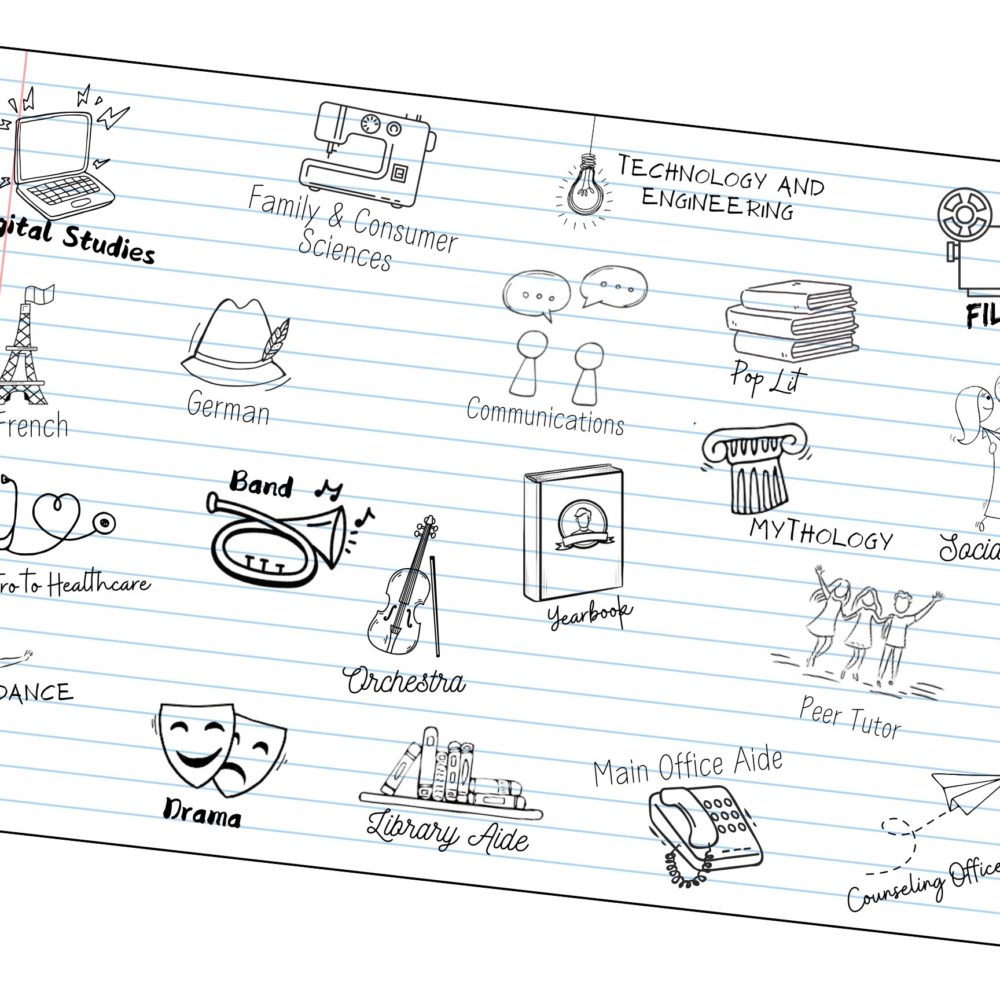 gital Studies
Family & Consumer
Sciences
TECHNOLOGY AND
ENGINEERING
FIL
French
German
Communications
Pop Lit
Band
MYTHOLOGY
Socia
ro to Healthcare
Yearbook
Orchestra
DANCE
Peer Tutor
Drama
Library Aide
Main Office Aide
Counseling Office